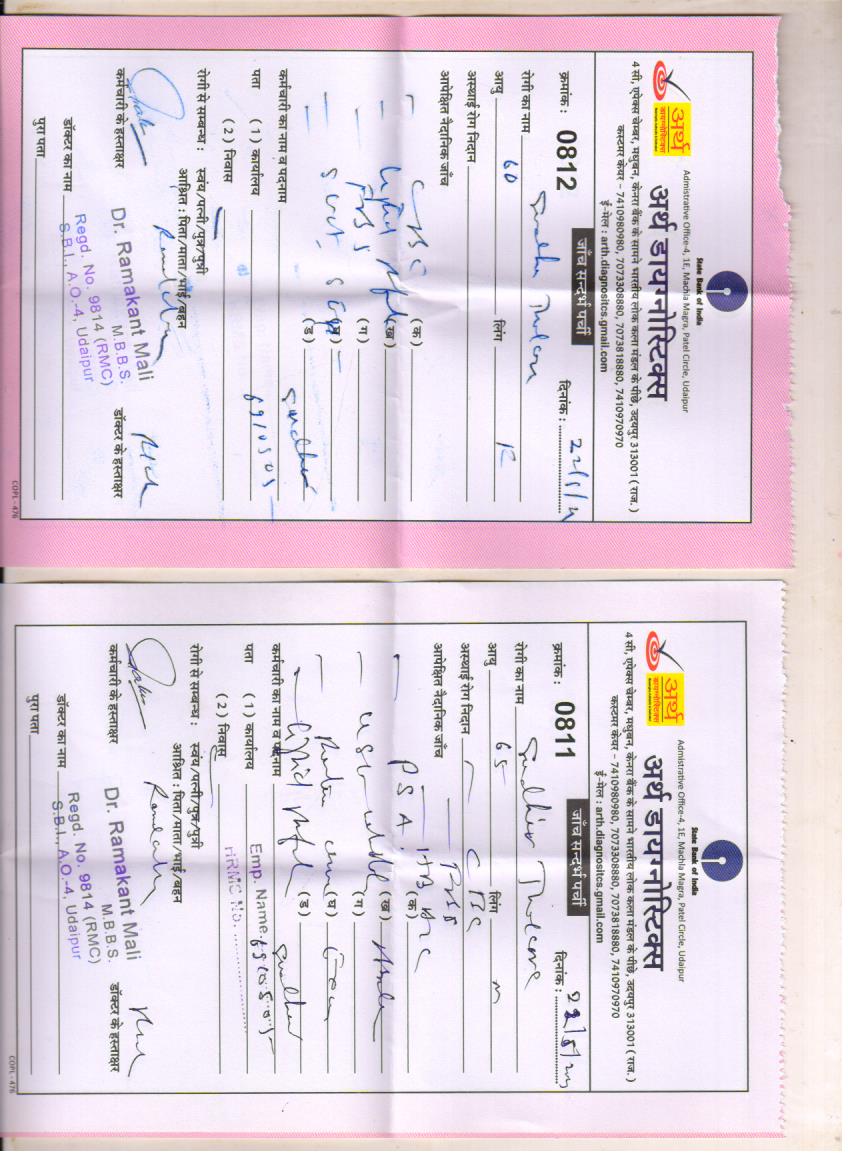 State Bank of India
Admistrative Office-4, 1E, Machla Magra, Patel Circle, Udaipur
अर्थ
डायग्नोस्टिक्स
अर्थ डायग्नोस्टिक्स
4 सी, एपेक्स चेम्बर, मधुबन, केनरा बैंक के सामने भारतीय लोक कला मंडल के पीछे, उदयपुर 313001 ( राज. )
कस्टमर केयर - 7410980980, 7073308880, 7073818880, 7410970970
ई-मेल : arth.diagnositcs.gmail.com
क्रमांक : 0812
जाँच सन्दर्भ पर्ची
दिनांक :
रोगी का नाम
आयु 60 लिंग
अस्थाई रोग निदान
आपेक्षित नैदानिक जाँच
CBC (क)
Lipid (ख)
FBS (ग)
(घ)
(ड)
कर्मचारी का नाम व पदनाम
पता (1) कार्यालय
(2) निवास
रोगी से सम्बन्ध : स्वंय/पत्नी/पुत्र/पुत्री
आश्रित : पिता/माता/भाई/बहन
कर्मचारी के हस्ताक्षर
Dr. Ramakant Mali
M.B.B.S.
Regd. No. 9814 (RMC)
S.B.I., A.O.-4, Udaipur
डॉक्टर के हस्ताक्षर
डॉक्टर का नाम
पुरा पता
COPL - 476
State Bank of India
Admistrative Office-4, 1E, Machla Magra, Patel Circle, Udaipur
अर्थ
डायग्नोस्टिक्स
अर्थ डायग्नोस्टिक्स
4 सी, एपेक्स चेम्बर, मधुबन, केनरा बैंक के सामने भारतीय लोक कला मंडल के पीछे, उदयपुर 313001 ( राज. )
कस्टमर केयर - 7410980980, 7073308880, 7073818880, 7410970970
ई-मेल : arth.diagnositcs.gmail.com
क्रमांक : 0811
जाँच सन्दर्भ पर्ची
दिनांक :
रोगी का नाम
आयु 65 लिंग m
अस्थाई रोग निदान CBC
आपेक्षित नैदानिक जाँच FBS
PSA. (क)
(ख)
(ग)
(घ)
Lipid (ड)
कर्मचारी का नाम व पदनाम
Emp. Name
पता (1) कार्यालय
HRMS No.
(2) निवास
रोगी से सम्बन्ध : स्वंय/पत्नी/पुत्र/पुत्री
आश्रित : पिता/माता/भाई/बहन
कर्मचारी के हस्ताक्षर
Dr. Ramakant Mali
M.B.B.S.
Regd. No. 9814 (RMC)
S.B.I., A.O.-4, Udaipur
डॉक्टर के हस्ताक्षर
डॉक्टर का नाम
पुरा पता
COPL - 476